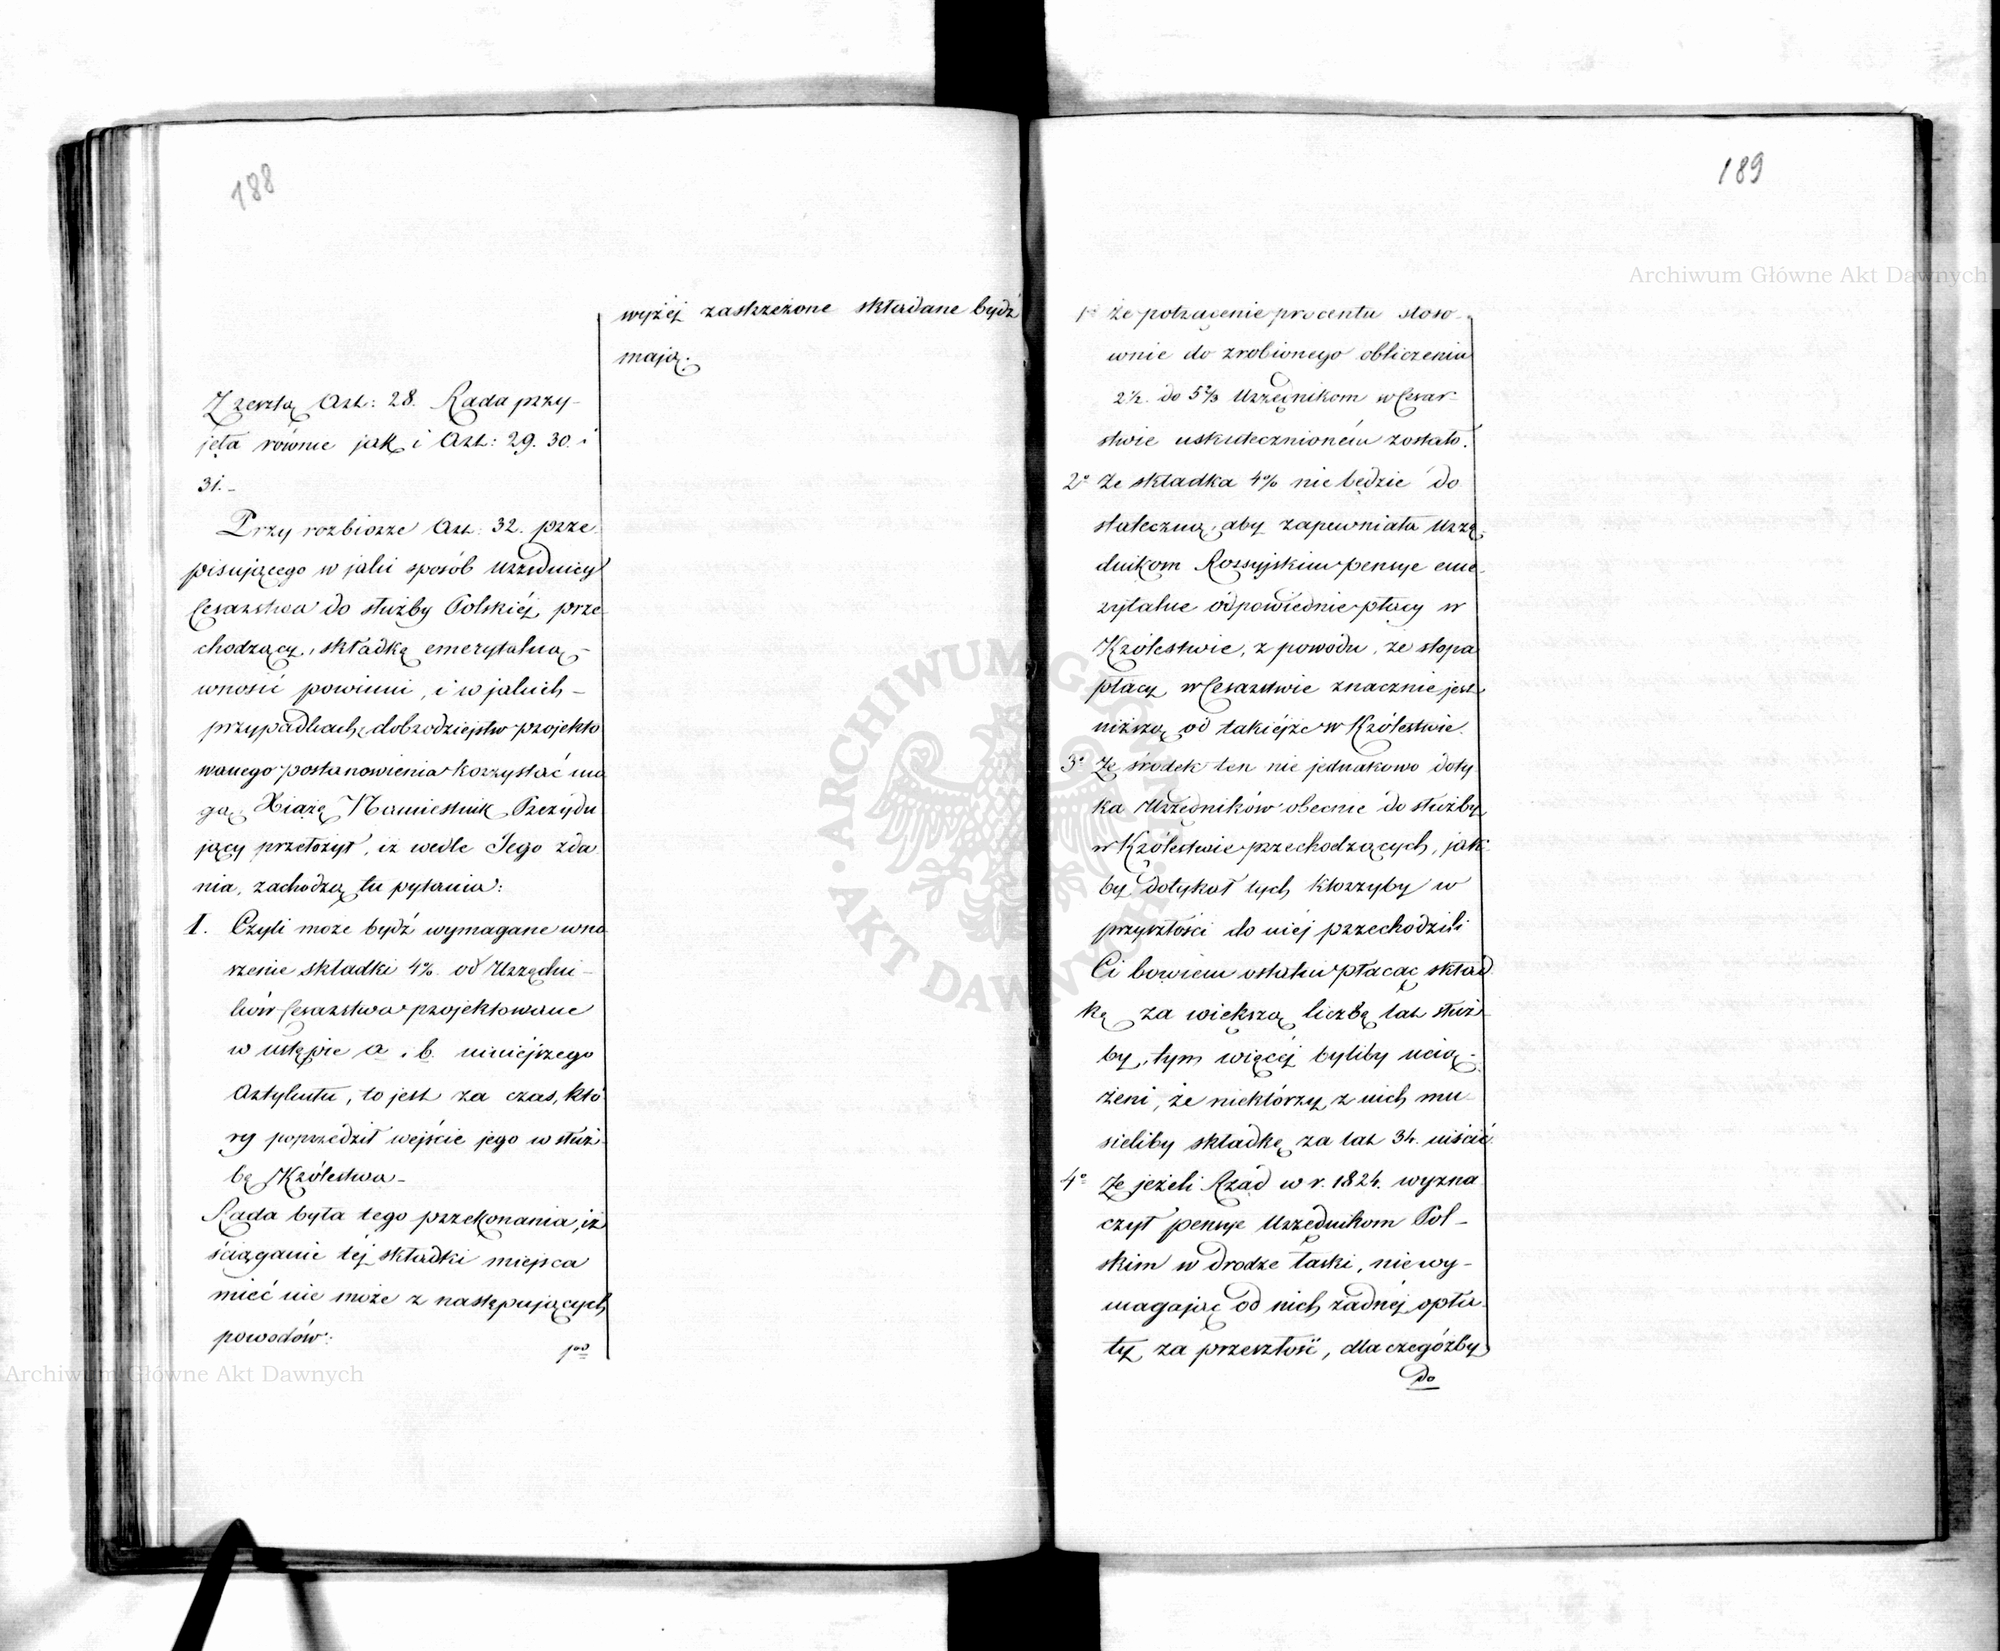 188
wyżéj zastrzeżone składane bydź
mają.
Zresztą Art: 28. Rada przy-
jęła równie jak i Art: 29. 30. i
31.-
Przy rozbiorze Art: 32. prze
pisującego w jaki sposób Urzędnicy
Cesarstwa do służby Polskiéj prze
chodzący, składkę emerytalną -
wnosić powinni, i w jakich -
przypadkach, dobrodziejstw projekto
wanego postanowienia korzystać mo
gą, Xiążę Namiestnik Prezydu
jący przełożył, iż wedle Jego zda
nia, zachodzą tu pytania:
I. Czyli może bydź wymagane wno
szenie składki 4% od Urzędni-
ków Cesarstwa projektowane
w ustępie a i b. niniejszego
Artykułu, to jest za czas, któ
ry poprzedził wejście jego w służ-
bę Królestwa-
Rada była tego przekonania, iż
ściąganie téj składki miejsca
mieć nie może z następujących
powodów:
1mo
189
1o Że potrącenie procentu stoso-
wnie do zrobionego obliczenia
2½ do 5⅔ Urzędnikom w Cesar-
stwie uskutecznioném zostało.
2o Że składka 4% nie będzie do
stateczną, aby zapewniała Urzę-
dnikom Rossyjskim pensye eme-
rytalne odpowiednie płacy w
Królestwie, z powodu, że stopa
płacy w Cesarstwie znacznie jest
niższą od takiéjże w Królestwie.
3o Że środek ten nie jednakowo doty
ka Urzędników obecnie do służby
w Królestwie przechodzących, jak-
by dotykał tych którzyby w
przyszłości do niéj przechodzili
Ci bowiem ostatni płacąc skład
kę za większą liczbę lat służ-
by, tym więcéj byliby ucią-
żeni, że niektórzy z nich mu-
sieliby składkę za lat 34. uiścić.
4o Że jeżeli Rząd w r. 1824. wyzna
czył pensye Urzędnikom Pol-
skim w drodze łaski, nie wy-
magając od nich żadnéj opła-
ty za przeszłość, dla czegóżby
do
Archiwum Główne Akt Dawnych
Archiwum Główne Akt Dawnych
ARCHIWUM GŁÓWNE AKT DAWNYCH